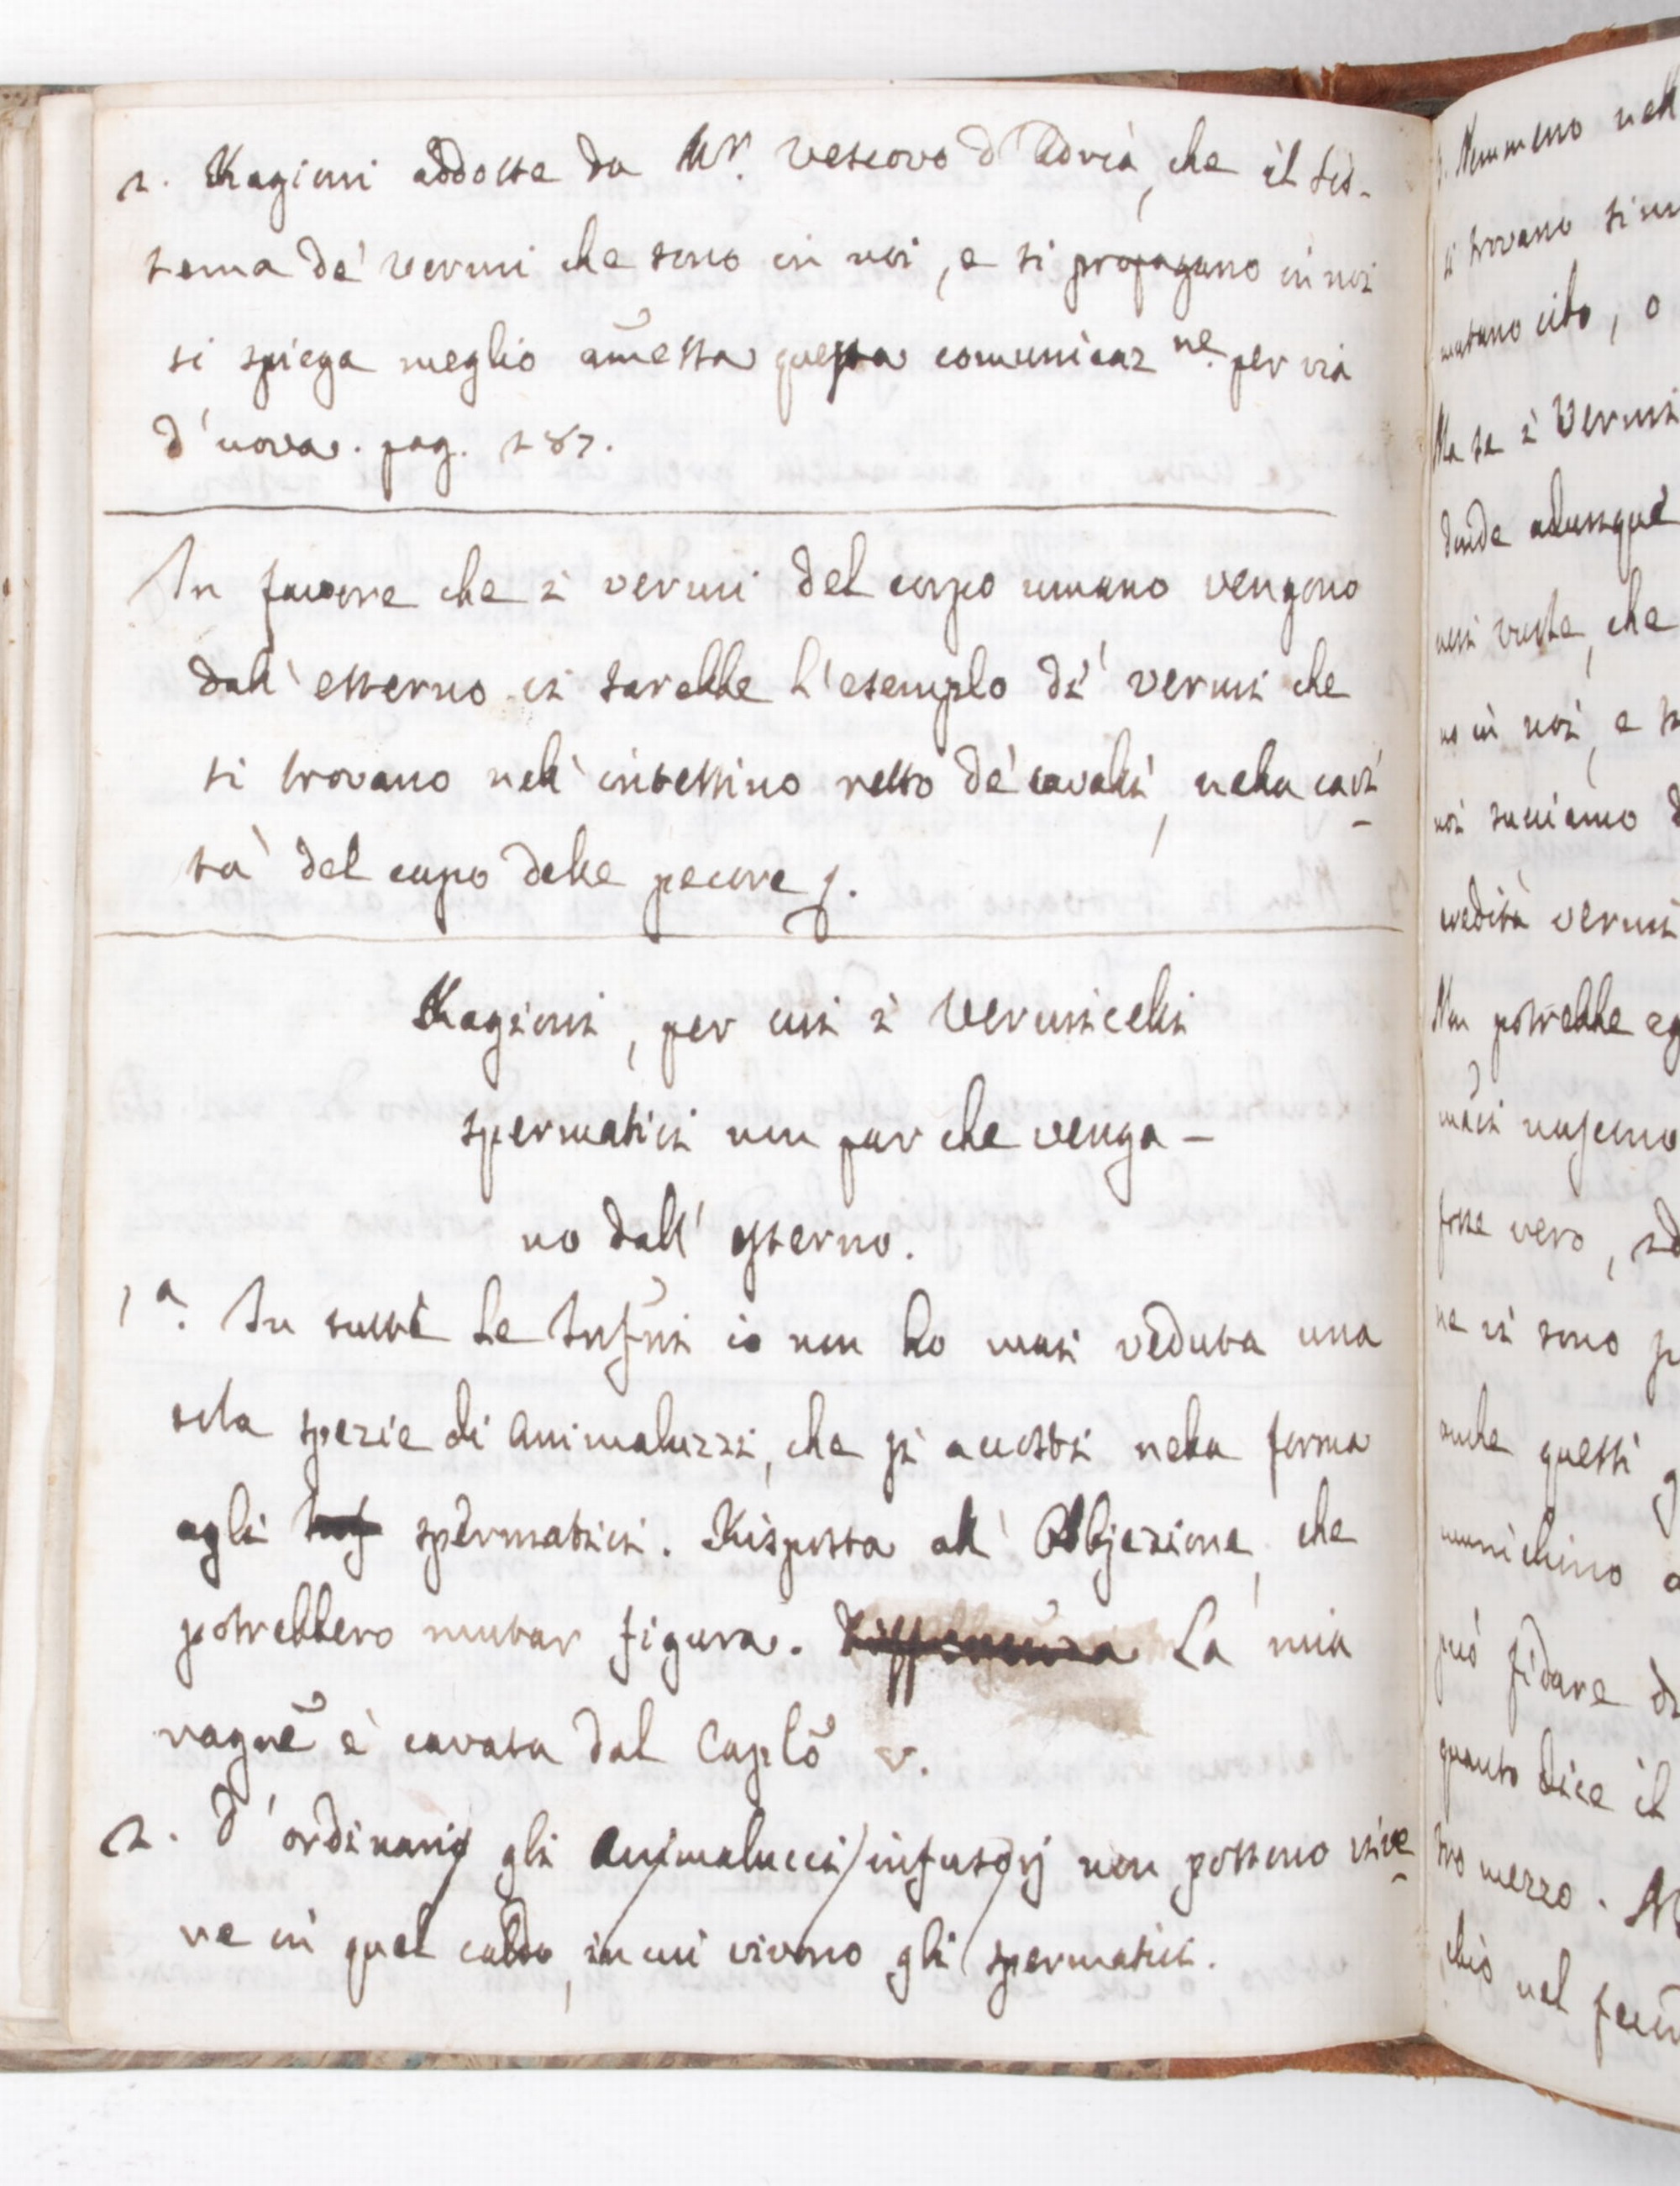 2. Ragioni addotte da Mr. Vescovo d'Adria, che il sis-
tema de' vermi che sono in noi, e si propagano in noi
si spiega meglio am̃essa questa comunicaz.ne per via
d'uova. pag. 287.
In favore che i vermi del corpo umano vengono
dall'esterno ci sarebbe l'esempio di' vermi che
si trovano nell'intestino retto de' cavalli, nella cavi-
tà del capo delle pecore
Ragioni, per cui i Vermicelli
spermatici non par che venga-
no dall'esterno.
1.a In tutte le Infus̃i io non ho mai veduta una
sola spezie di animaluzzi, che si accosti nella forma
agli Inf spermatici. Risposta all'Obbjezione, che
potrebbero mutar figura. La mia
ragnẽ è cavata dal Caplõ V.
2. D'ordinario gli Animalucci infusorj non possono vive-
re in quel caldo, in cui vivono gli spermatici.
3. Nemmeno nell
si trovano
mutano cibo, o
Ma se i Vermi
donde adunque
che
no in noi, e
noi
eredità vermi
Non potrebbe
nascono
fosse vero,
ne ci sono
anche questi
può fidare
quanto dice il
tro mezzo.
chio nel